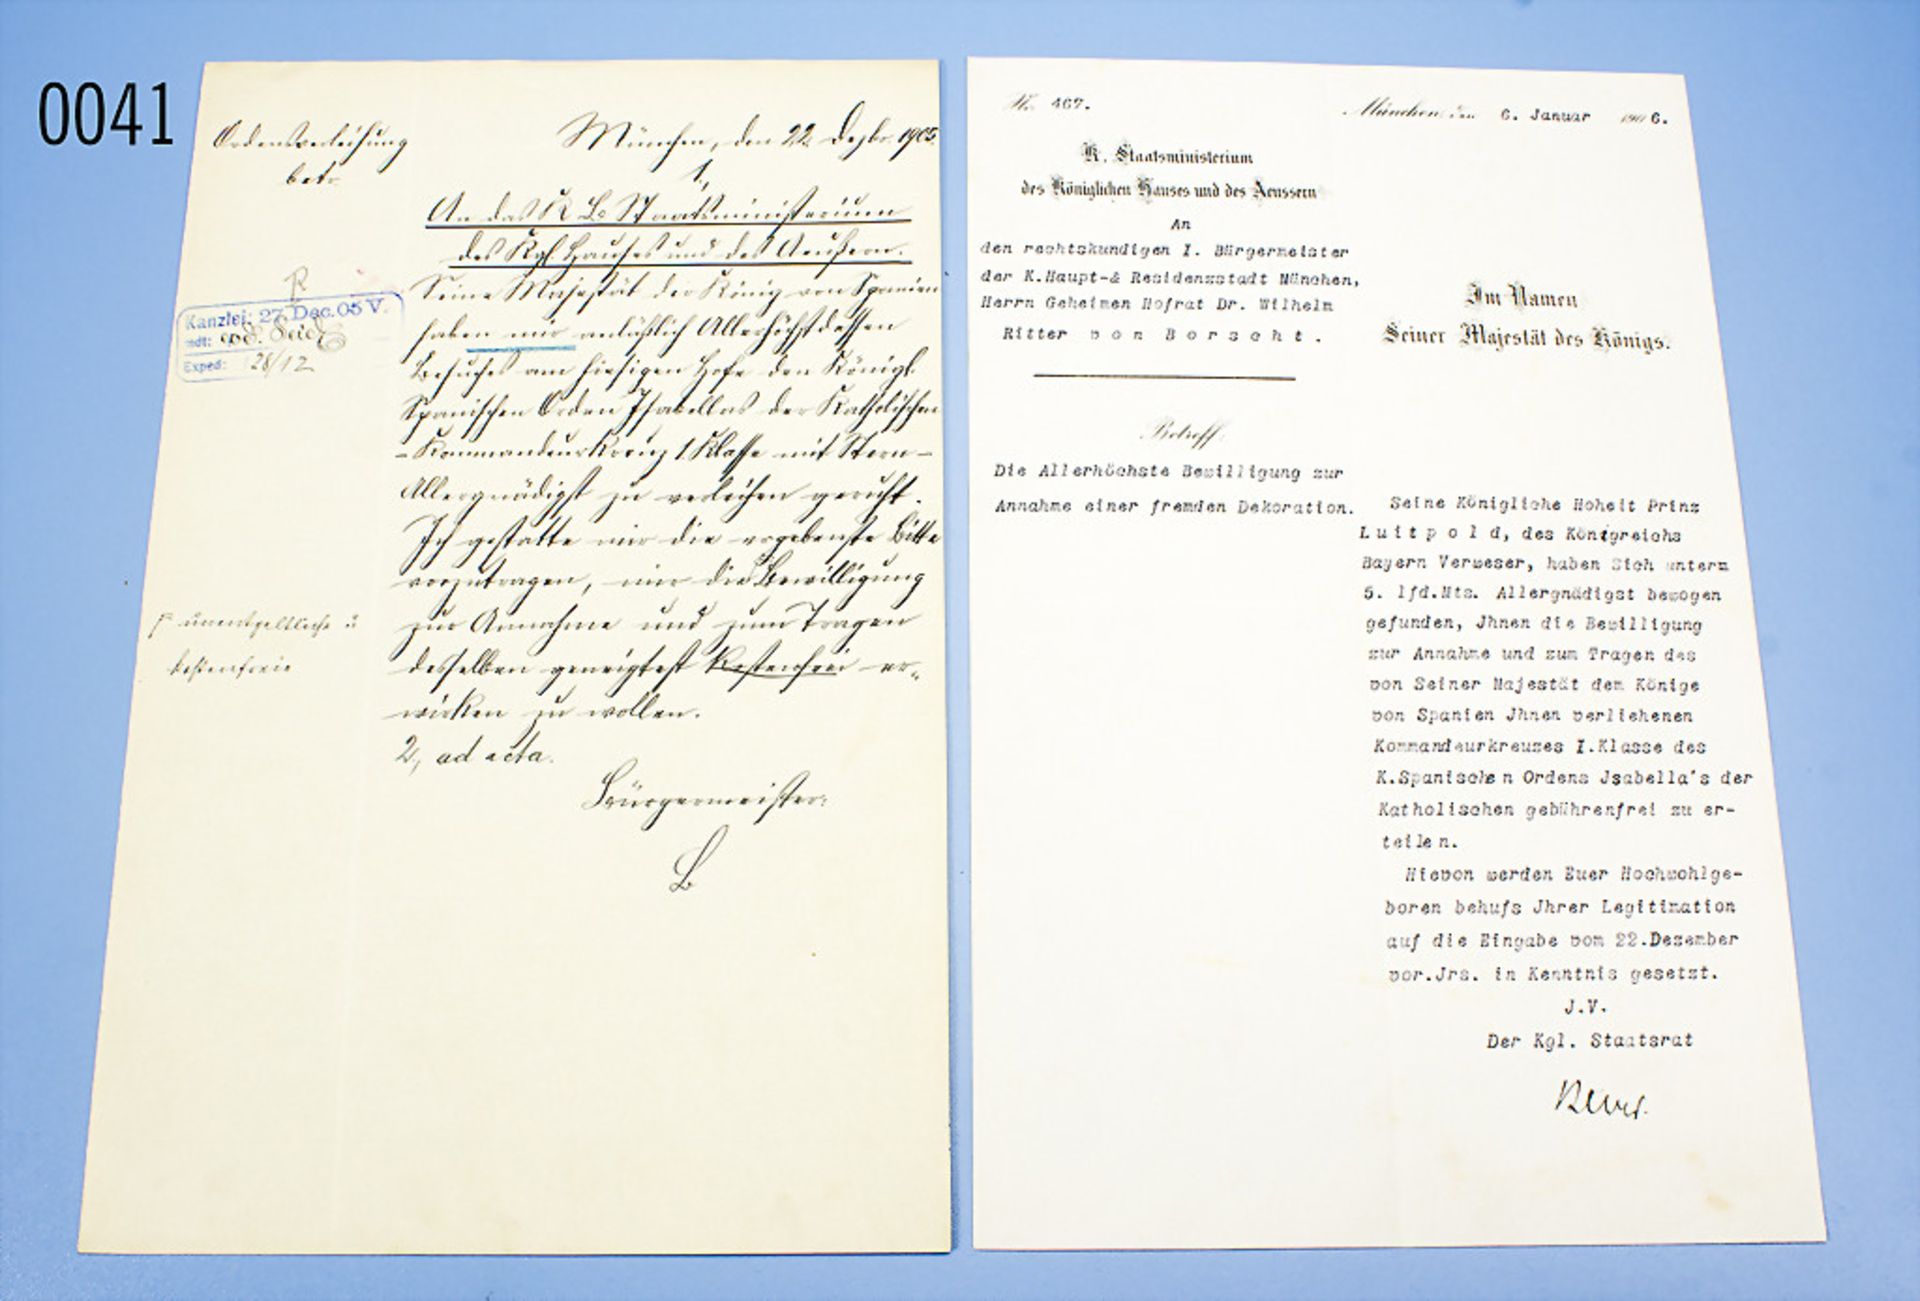 0041
Ordensverleihung
betr.
München, den 22. Dezbr. 1905.
1.,
An das K. B. Staatsministerium
des Kgl. Hauses und des Aeußern.
Seine Majestät der König von Spanien
haben mir anläßlich Allerhöchstdessen
Besuches am hiesigen Hofe den Königl.
Spanischen Orden Isabellas der Katholischen
- Kommandeur Kreuz 1. Klasse mit Stern -
Allergnädigst zu verleihen geruht.
Ich gestatte mir die ergebenste Bitte
vorzutragen, mir die Bewilligung
zur Annahme und zum Tragen
desselben geneigtest kostenfrei er-
wirken zu wollen.
2, ad acta.
Bürgermeister:
B
Kanzlei: 27. Dec. 05 V.
mdt:
Exped: 28/12
unentgeltliche u
kostenfreie
Nr. 467.
München, den 6. Januar 1906.
K. Staatsministerium
des Königlichen Hauses und des Aeussern
An
den rechtskundigen I. Bürgermeister
der K.Haupt-& Residenzstadt München,
Herrn Geheimen Hofrat Dr. Wilhelm
Ritter von Borscht.
Im Namen
Seiner Majestät des Königs.
Betreff:
Die Allerhöchste Bewilligung zur
Annahme einer fremden Dekoration.
Seine Königliche Hoheit Prinz
Luitpold, des Königreichs
Bayern Verweser, haben Sich unterm
5. lfd.Mts. Allergnädigst bewogen
gefunden, Jhnen die Bewilligung
zur Annahme und zum Tragen des
von Seiner Majestät dem Könige
von Spanien Jhnen verliehenen
Kommandeurkreuzes I.Klasse des
K.Spanischen Ordens Jsabella's der
Katholischen gebührenfrei zu er-
teilen.
Hievon werden Euer Hochwohlge-
boren behufs Jhrer Legitimation
auf die Eingabe vom 22.Dezember
vor.Jrs. in Kenntnis gesetzt.
J.V.
Der Kgl. Staatsrat